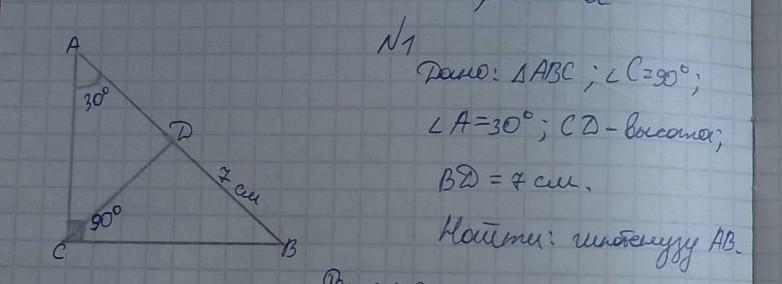 N1
Дано: △ABC; ∠C=90°;
∠A=30°; CD-высота;
BD = 7 см.
Найти: гипотенузу AB.
A
30°
D
7 см
90°
C
B